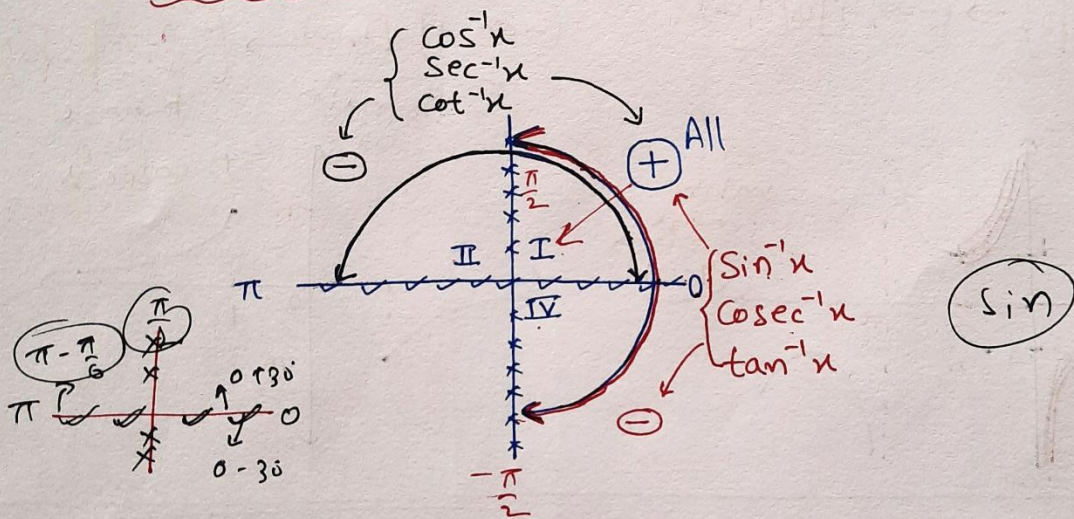 cos⁻¹x
sec⁻¹x
cot⁻¹x
−
+
All
π/2
II
I
π
0
IV
sin⁻¹x
cosec⁻¹x
tan⁻¹x
−
-π/2
sin
π - π/6
π/2
0+30
π
0
0-30